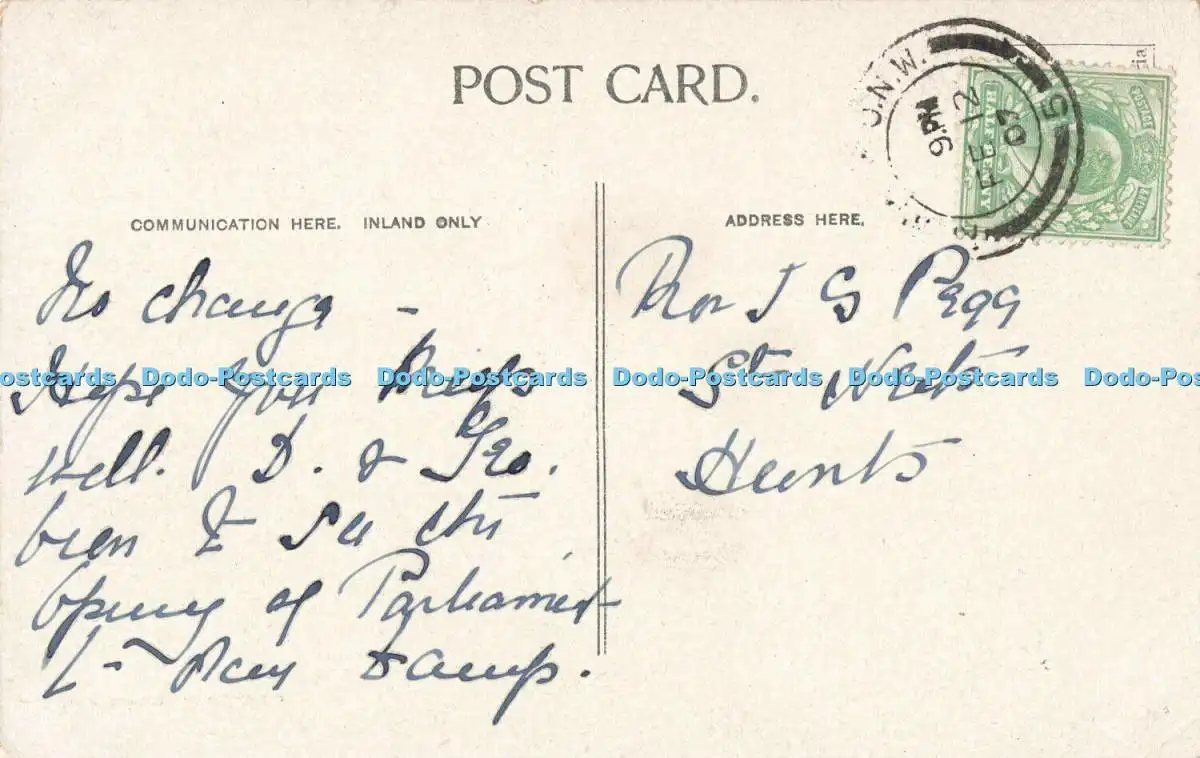 POST CARD.
COMMUNICATION HERE. INLAND ONLY
ADDRESS HERE.
N.W.
5
9. PM
FE 12
07
HALF PENNY
POSTAGE
No change -
Hope you keep
well. D. & Geo.
been to see the
Opening of Parliament
Damp.
J G Pegg
St Neots
Hunts
Dodo-Postcards Dodo-Postcards Dodo-Postcards Dodo-Postcards Dodo-Postcards